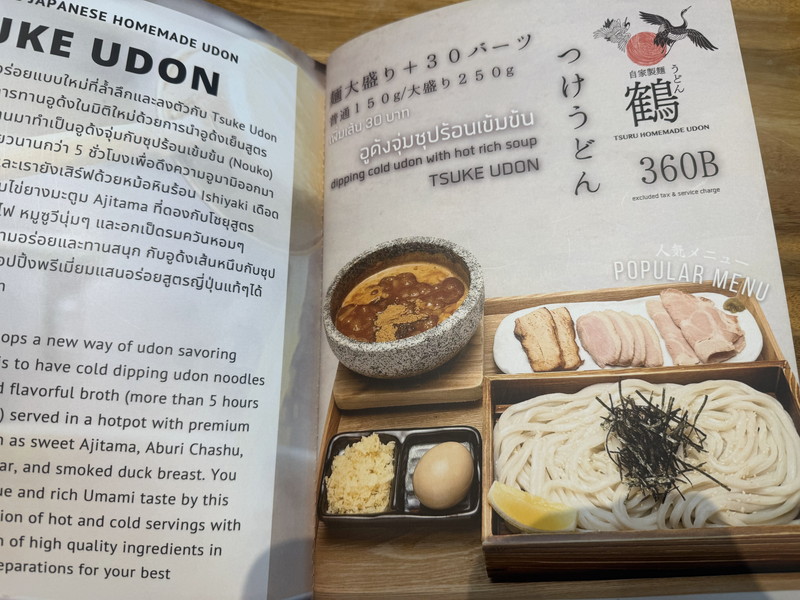 JAPANESE HOMEMADE UDON
UKE UDON
ร่อยแบบใหม่ที่ล้ำลึกและลงตัวกับ Tsuke Udon
การทานอูด้งในมิติใหม่ด้วยการนำอูด้งเย็นสูตร
นมาทำเป็นอูด้งจุ่มซุปร้อนเข้มข้น (Nouko)
วนานกว่า 5 ชั่วโมงเพื่อดึงความอูมามิออกมา
และเรายังเสิร์ฟด้วยหม้อหินร้อน Ishiyaki เดือด
ไข่ยางมะตูม Ajitama ที่ดองกับโชยุสูตร
ไฟ หมูชูวีนุ่มๆ และอกเป็ดรมควันหอมๆ
ามอร่อยและทานสนุก กับอูด้งเส้นหนึบกับซุป
อปปิ้งพรีเมี่ยมแสนอร่อยสูตรญี่ปุ่นแท้ๆได้
ops a new way of udon savoring
is to have cold dipping udon noodles
d flavorful broth (more than 5 hours
) served in a hotpot with premium
as sweet Ajitama, Aburi Chashu,
ar, and smoked duck breast. You
ue and rich Umami taste by this
ion of hot and cold servings with
n of high quality ingredients in
eparations for your best
麺大盛り＋３０バーツ
普通１５０g/大盛り２５０g
เพิ่มเส้น 30 บาท
อูด้งจุ่มซุปร้อนเข้มข้น
dipping cold udon with hot rich soup
TSUKE UDON
つけうどん
自家製麺
うどん
鶴
TSURU HOMEMADE UDON
360B
excluded tax & service charge
人気メニュー
POPULAR MENU